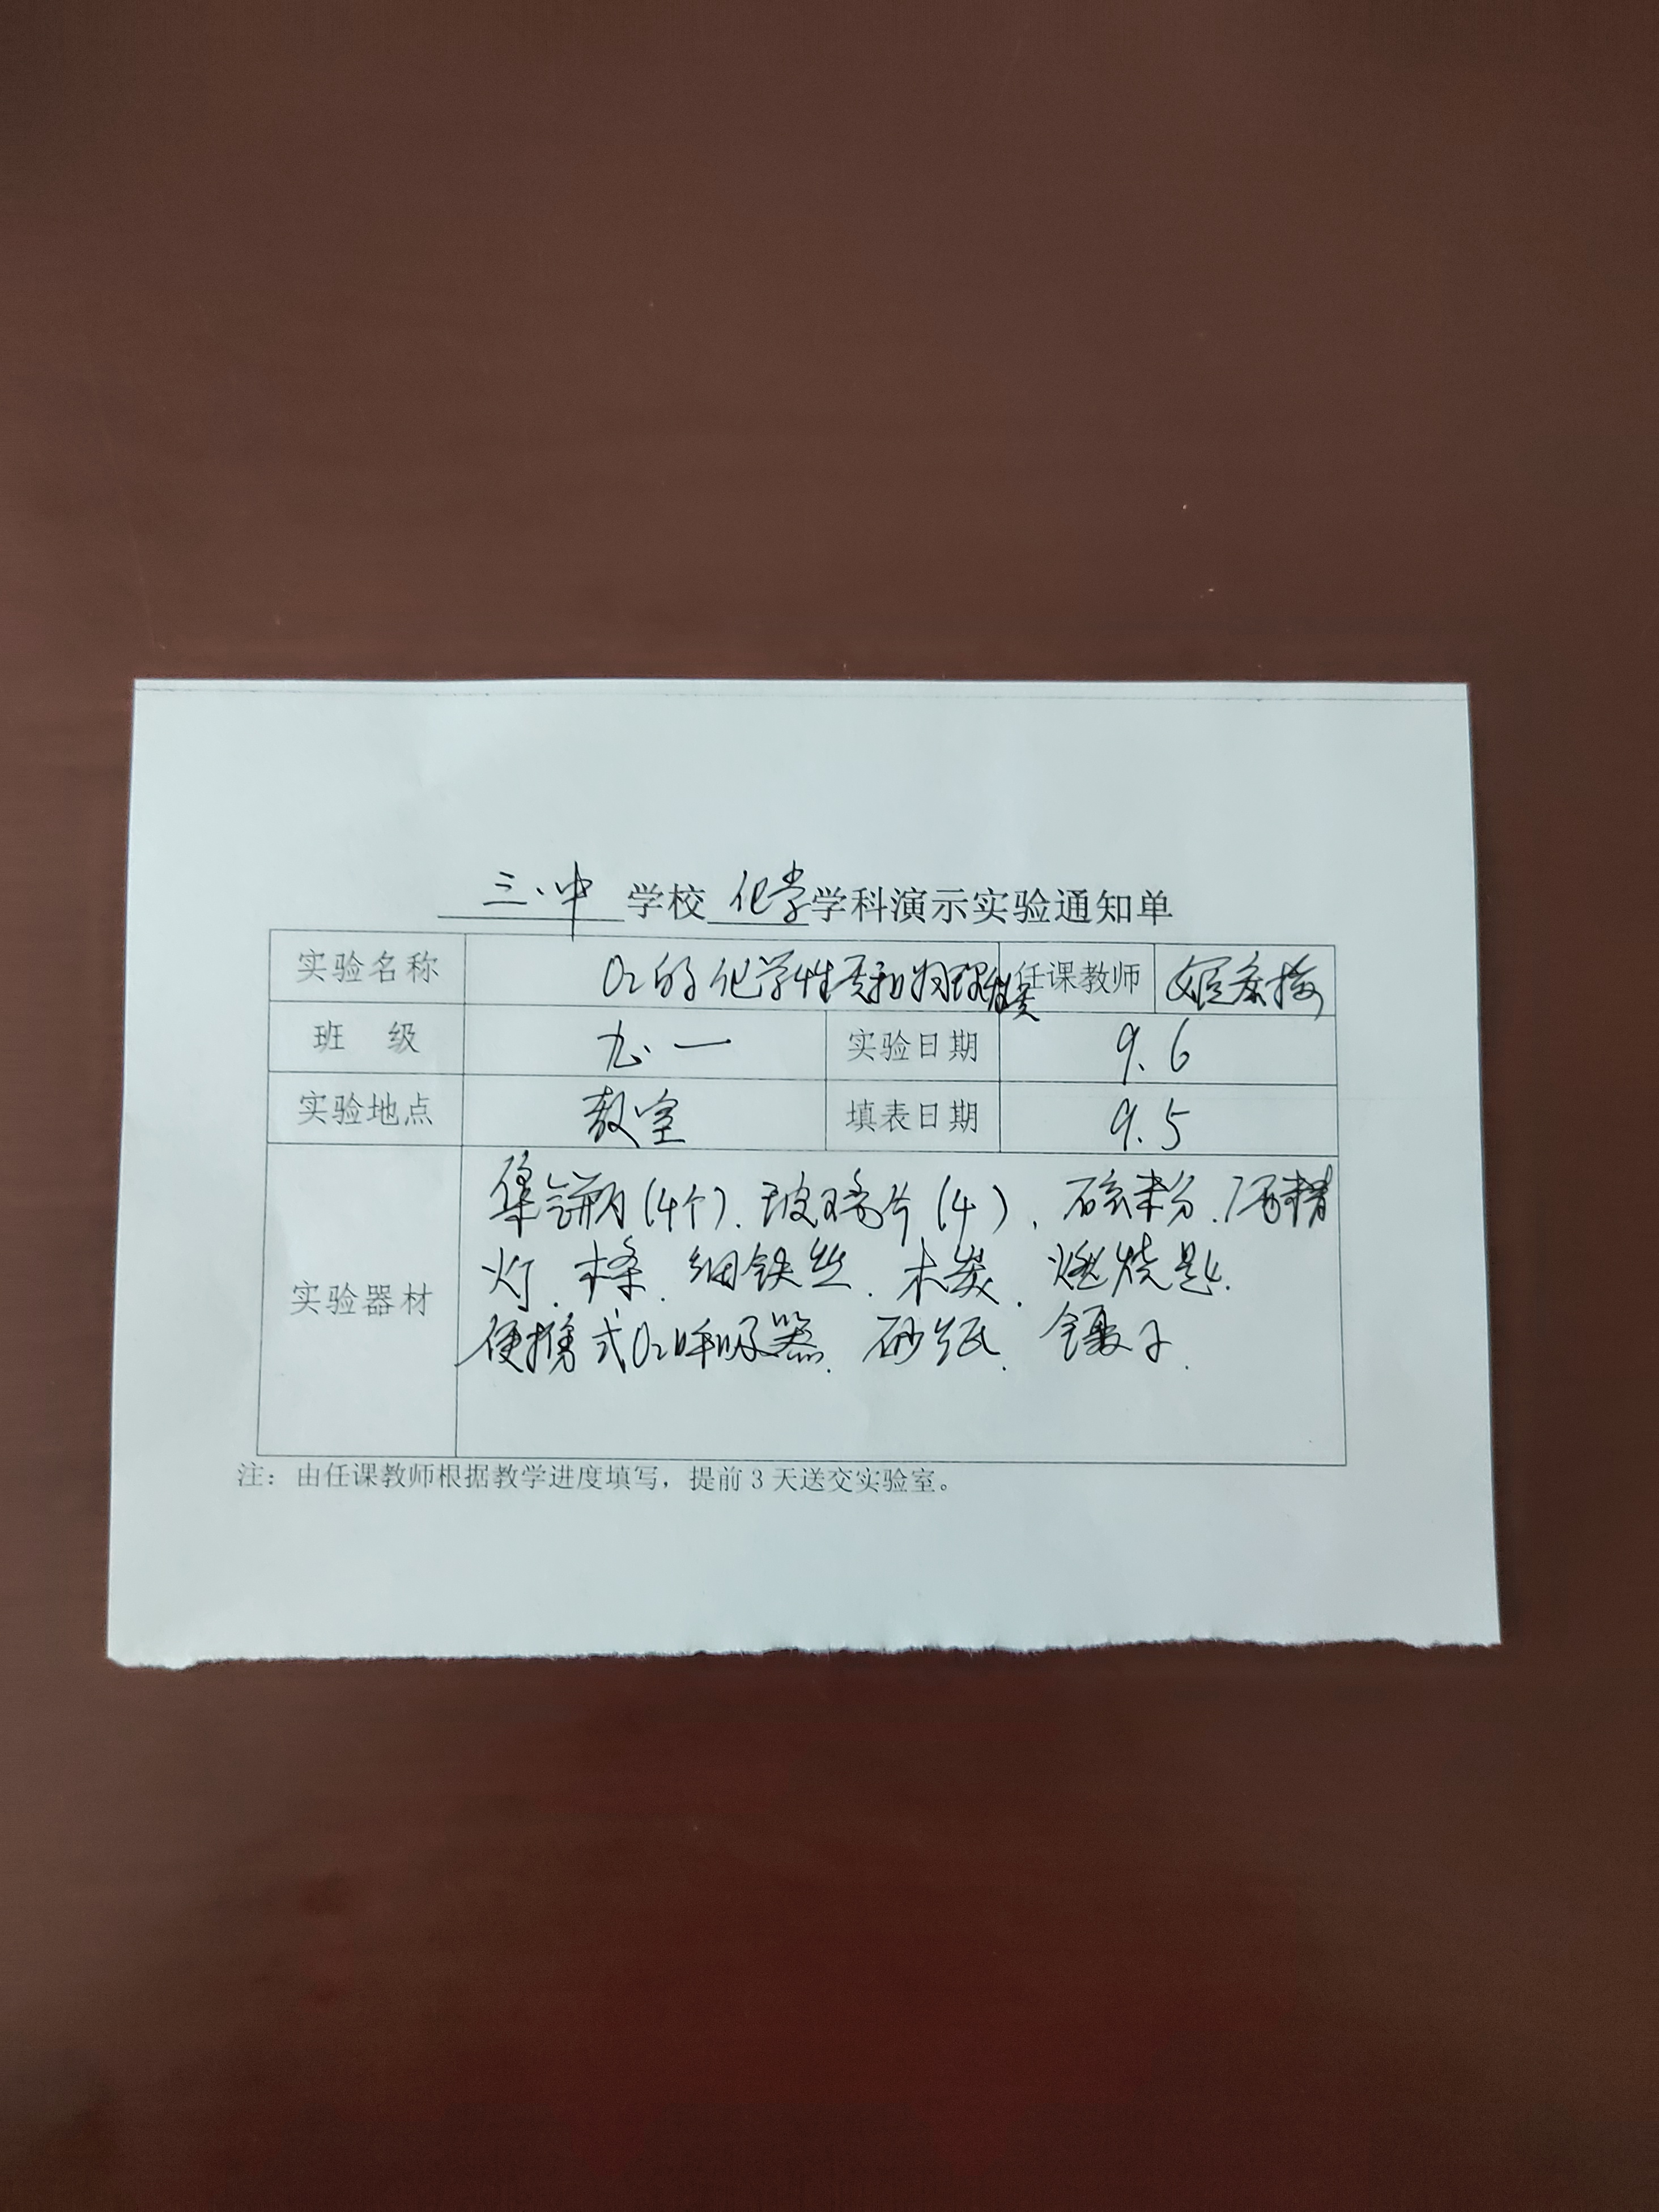 三.中 学校 化学 学科演示实验通知单
实验名称 O₂的化学性质和物理性质 任课教师
班 级 九.一 实验日期 9.6
实验地点 教室 填表日期 9.5
实验器材
集气瓶(4个).玻璃片(4).硫粉.酒精
灯.木条.细铁丝.木炭.燃烧匙.
便携式O₂呼吸器.砂纸.镊子.
注：由任课教师根据教学进度填写，提前3天送交实验室。